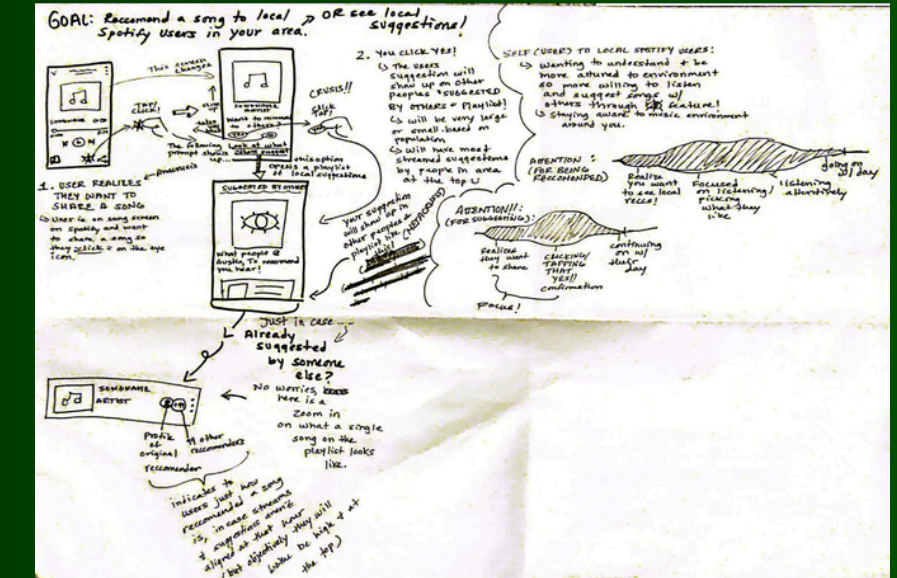 GOAL: Reccomend a song to local → OR see local
Spotify Users in your area. suggestions!
This screen
changes
TAP/
CLICK!
SONGNAME
ARTIST
Want to recommend
to others?
Look at what
others suggest
The following
prompt shows
up...
Awareness
CRISIS!!
Click
TAP!
this option
OPENS a playlist
of local suggestions
1. USER REALIZES
THEY WANT TO
SHARE A SONG
↳ User is on song screen
on Spotify and want
to share a song so
they click on the eye
icon.
SUGGESTED BY OTHERS
What people @
Austin, Tx recommend
you hear!
your suggestion
will show up in
other peoples
playlist like
this!
2. YOU CLICK YES!
↳ The users
suggestion will
show up on other
peoples "SUGGESTED
BY OTHERS" Playlist!
↳ will be very large
or small based on
population
↳ Will have most
streamed suggestions
by people in area
at the top
SELF (USER) TO LOCAL SPOTIFY USERS:
↳ Wanting to understand + be
more attuned to environment
so more willing to listen
and suggest songs w/
others through feature!
↳ Staying aware to music environment
around you.
ATTENTION:
(FOR BEING
RECCOMENDED)
Realize
you want
to see local
reccs!
Focused
on listening/
picking
what they
like
listening
attentively
going on
w/ day
ATTENTION!!:
(FOR SUGGESTING):
Realizes
they want
to share
CLICKING/
TAPPING
THAT
YES!!
confirmation
continuing
on w/
their
day
FOCUS!
Just in case....
Already
suggested
by someone
else?
No worries,
here is a
zoom in
on what a single
song on the
playlist looks
like.
SONGNAME
ARTIST
Profile
of
original
reccomender
other
reccomenders
indicates to
users just how
reccomended a song
is, in case streams
+ suggestions aren't
aligned at that hour
(but objectively they will
both be high + at
the top)